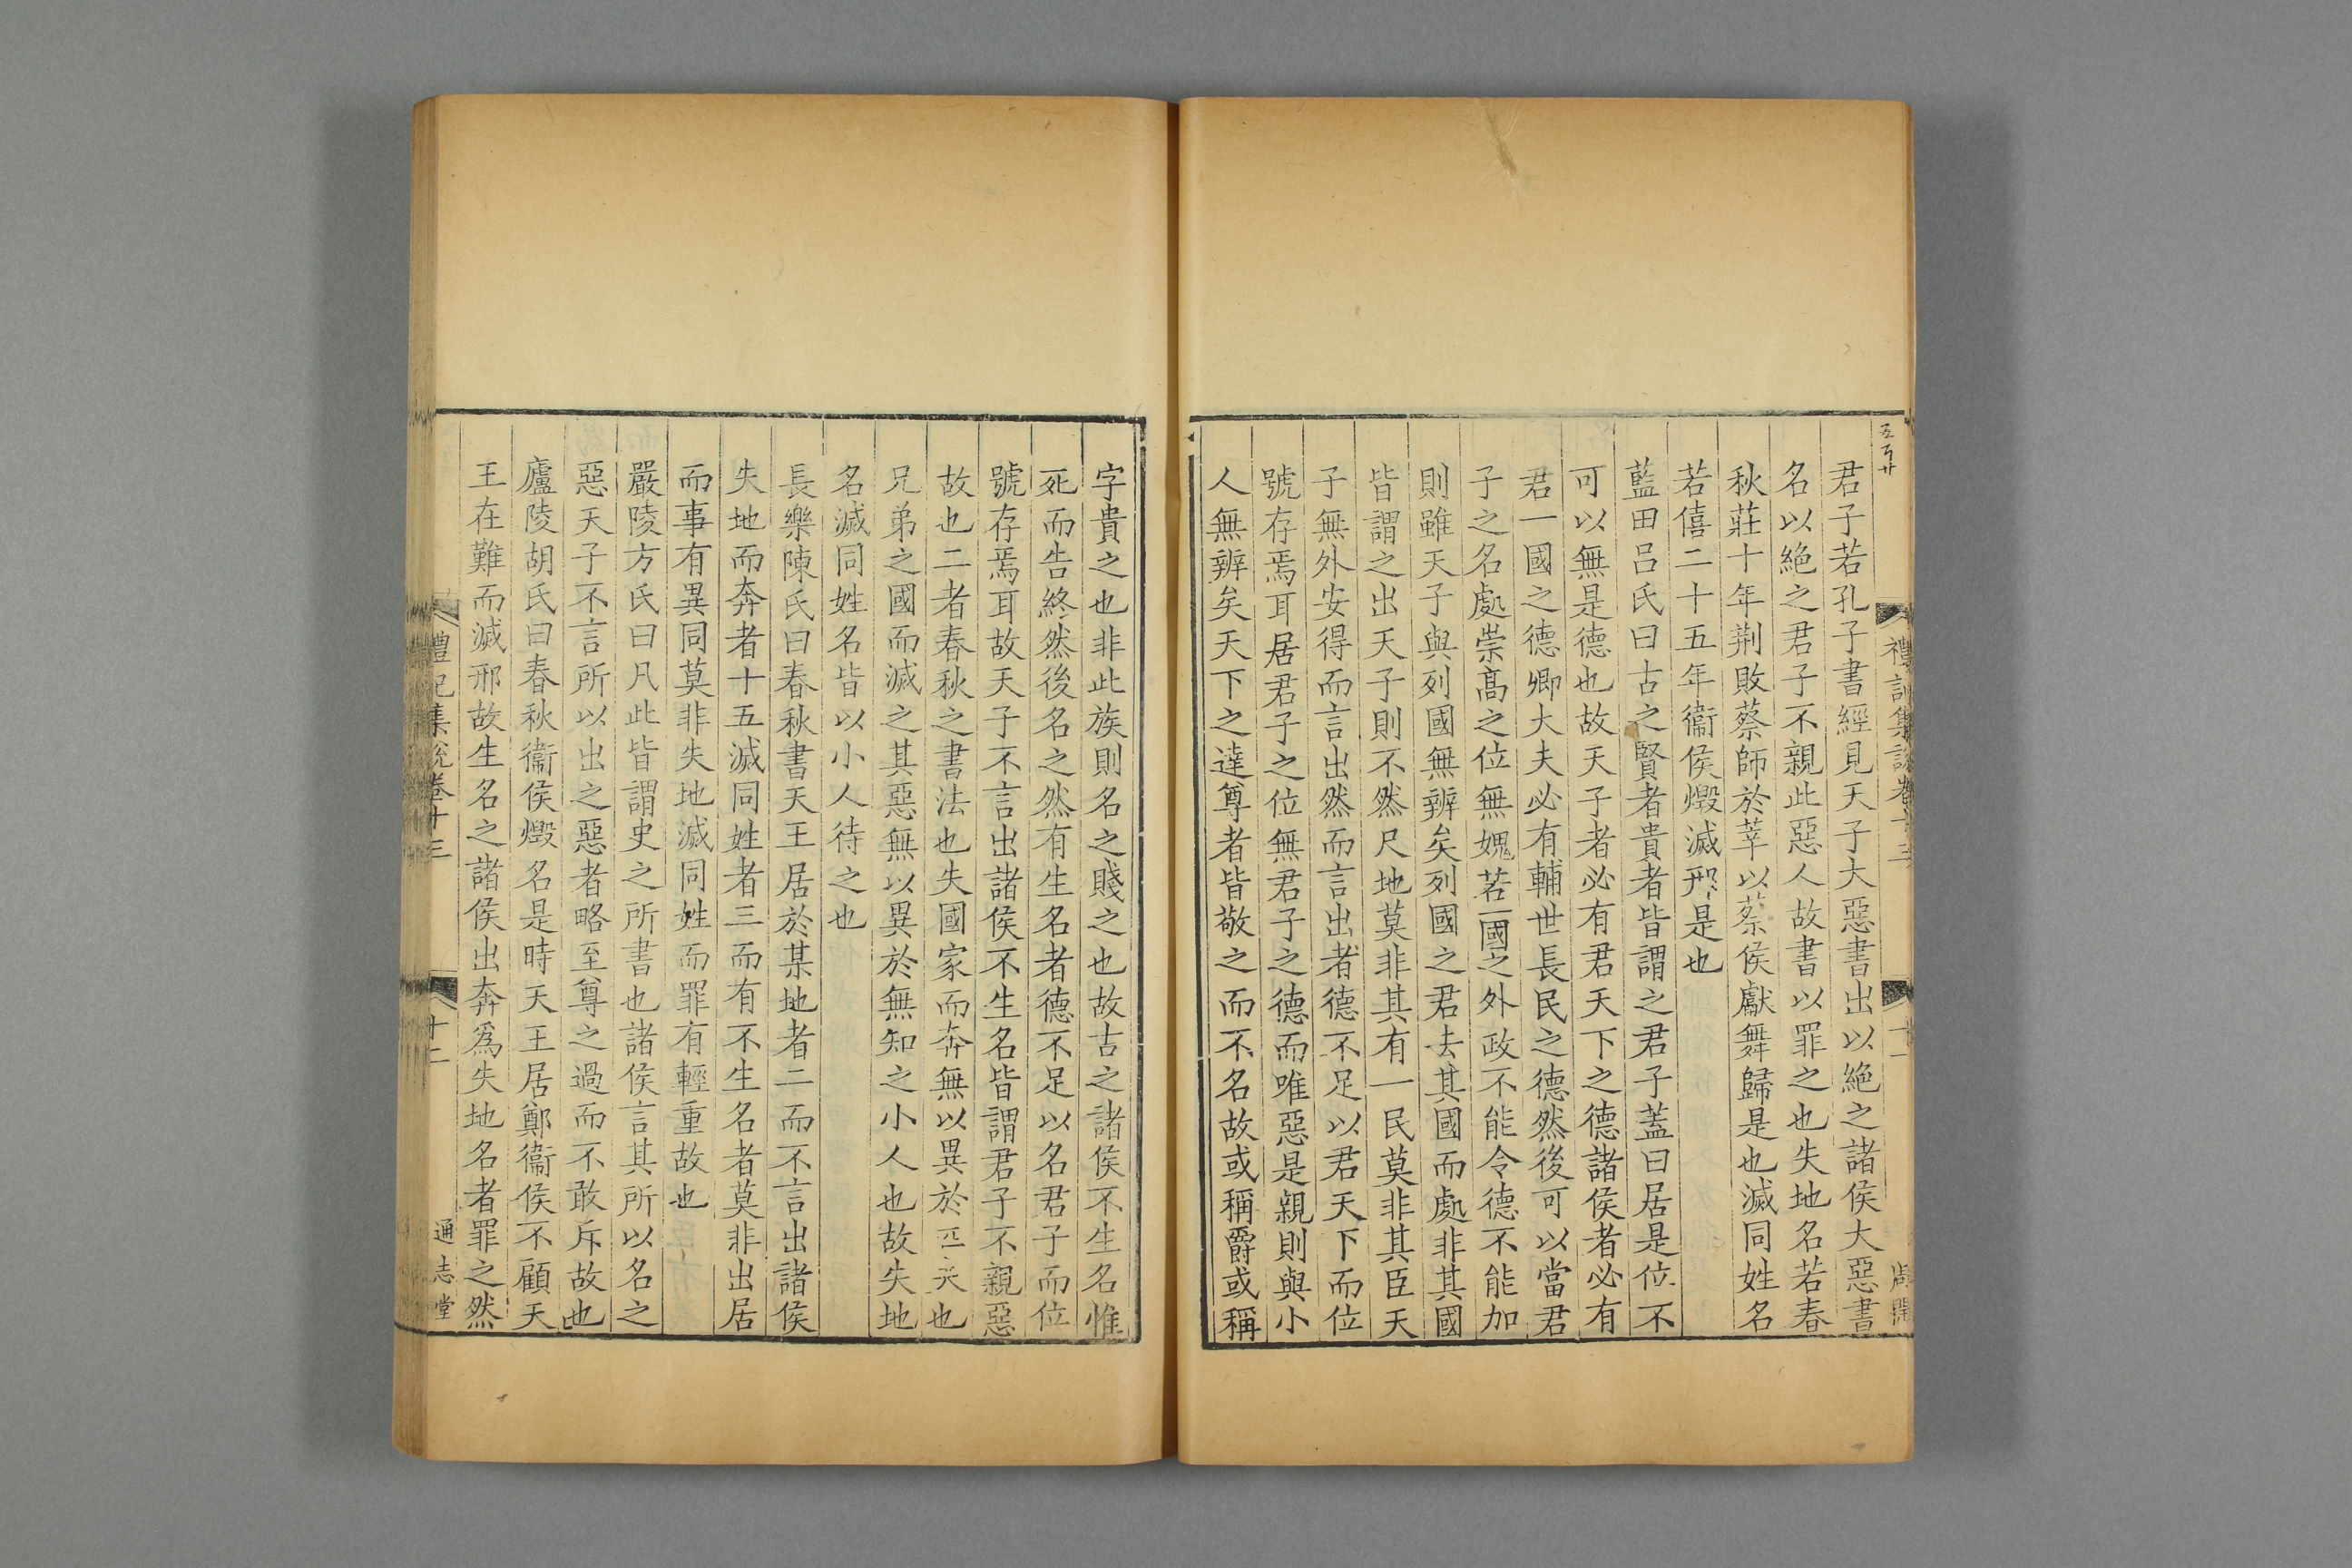 禮記集說卷十三
十一
君子若孔子書經見天子大惡書出以絕之諸侯大惡書
名以絕之君子不親此惡人故書以罪之也失地名若春
秋莊十年荆敗蔡師於莘以蔡侯獻舞歸是也滅同姓名
若僖二十五年衞侯燬滅邢是也
藍田呂氏曰古之賢者貴者皆謂之君子蓋曰居是位不
可以無是德也故天子者必有君天下之德諸侯者必有
君一國之德卿大夫必有輔世長民之德然後可以當君
子之名處崇高之位無媿若一國之外政不能令德不能加
則雖天子與列國無辨矣列國之君去其國而處非其國
皆謂之出天子則不然尺地莫非其有一民莫非其臣天
子無外安得而言出然而言出者德不足以君天下而位
號存焉耳居君子之位無君子之德而唯惡是親則與小
人無辨矣天下之達尊者皆敬之而不名故或稱爵或稱
字貴之也非此族則名之賤之也故古之諸侯不生名惟
死而告終然後名之然有生名者德不足以名君子而位
號存焉耳故天子不言出諸侯不生名皆謂君子不親惡
故也二者春秋之書法也失國家而奔無以異於匹夫也
兄弟之國而滅之其惡無以異於無知之小人也故失地
名滅同姓名皆以小人待之也
長樂陳氏曰春秋書天王居於某地者二而不言出諸侯
失地而奔者十五滅同姓者三而有不生名者莫非出居
而事有異同莫非失地滅同姓而罪有輕重故也
嚴陵方氏曰凡此皆謂史之所書也諸侯言其所以名之
惡天子不言所以出之惡者略至尊之過而不敢斥故也
廬陵胡氏曰春秋衞侯燬名是時天王居鄭衞侯不顧天
王在難而滅邢故生名之諸侯出奔爲失地名者罪之然
禮記集說卷十三
十二
通志堂